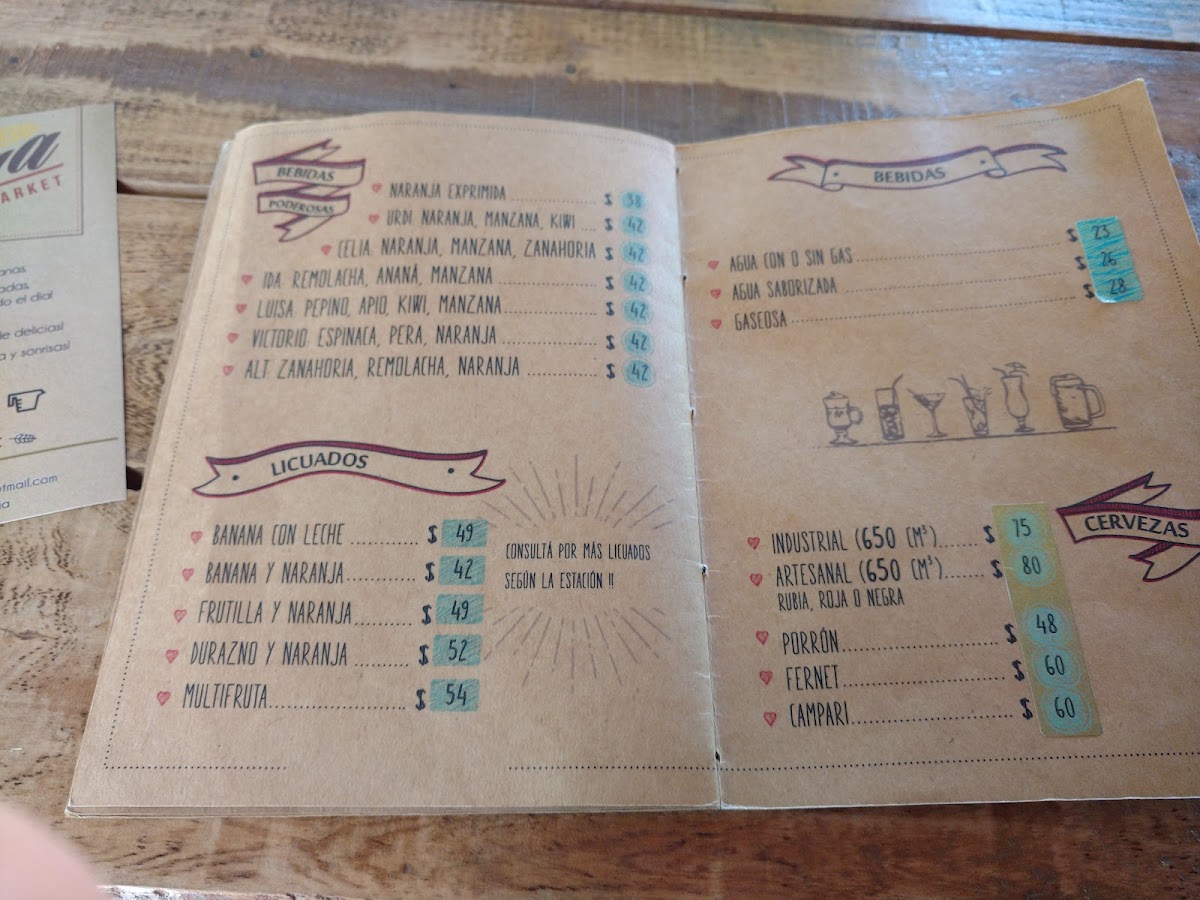 a
ARKET
anas
adas,
do el dia!
de delicias!
a y sonrisas!
tmail.com
ia
BEBIDAS
PODEROSAS
NARANJA EXPRIMIDA ........ $ 38
URDI: NARANJA, MANZANA, KIWI .... $ 42
CELIA: NARANJA, MANZANA, ZANAHORIA $ 42
IDA: REMOLACHA, ANANÁ, MANZANA ........ $ 42
LUISA: PEPINO, APIO, KIWI, MANZANA ........ $ 42
VICTORIO: ESPINACA, PERA, NARANJA ........ $ 42
ALT: ZANAHORIA, REMOLACHA, NARANJA ........ $ 42
LICUADOS
BANANA CON LECHE ........ $ 49
BANANA Y NARANJA ........ $ 42
FRUTILLA Y NARANJA ........ $ 49
DURAZNO Y NARANJA ........ $ 52
MULTIFRUTA ........ $ 54
CONSULTÁ POR MÁS LICUADOS
SEGÚN LA ESTACIÓN !!
BEBIDAS
AGUA CON O SIN GAS ........ $ 23
AGUA SABORIZADA ........ $ 26
GASEOSA ........ $ 28
CERVEZAS
INDUSTRIAL (650 CM³) ........ $ 75
ARTESANAL (650 CM³) ........ $ 80
RUBIA, ROJA O NEGRA
PORRÓN ........ $ 48
FERNET ........ $ 60
CAMPARI ........ $ 60